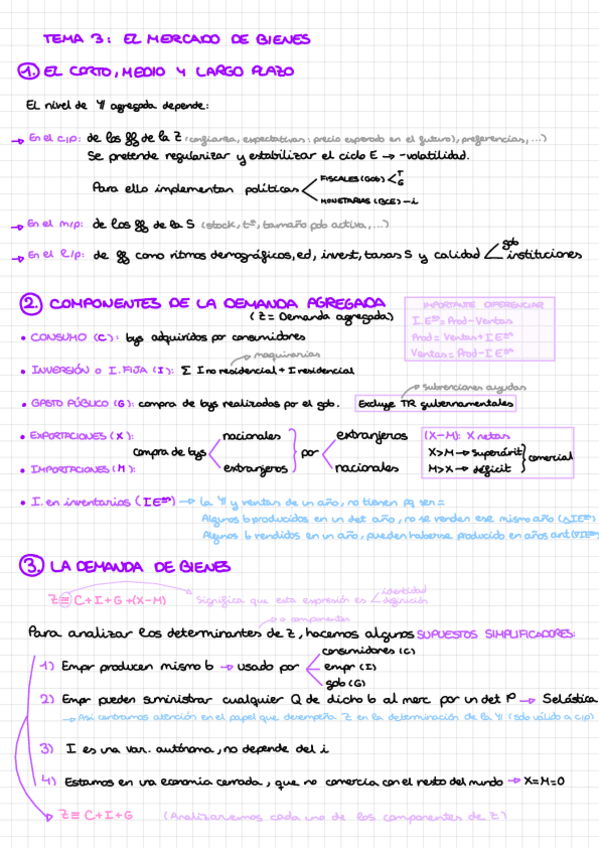 TEMA 3: EL MERCADO DE BIENES
1. EL CORTO, MEDIO Y LARGO PLAZO
EL nivel de Y agregada depende:
→ En el c/p: de los gg de la Z (confianza, expectativas: precio esperado en el futuro), preferencias,...)
Se pretende regularizar y estabilizar el ciclo E → -volatilidad.
Para ello implementan políticas
FISCALES (GOB) < T G
MONETARIAS (BCE) - i
→ En el m/p: de los gg de la S (stock, tª, tamaño pob activa,...)
→ En el l/p: de gg como ritmos demográficos, ed, invest, tasas S y calidad < gob instituciones
2. COMPONENTES DE LA DEMANDA AGREGADA
(Z = Demanda agregada)
IMPORTANTE DIFERENCIAR
I.Eᵒˢ = Prod - Ventas
Prod = Ventas + I Eᵒˢ
Ventas = Prod - I Eᵒˢ
• CONSUMO (C): bys adquiridos por consumidores
maquinarias
• INVERSIÓN O I. FIJA (I): Σ I no residencial + I residencial
subvenciones ayudas
• GASTO PÚBLICO (G): compra de bys realizados por el gob. Excluye TR gubernamentales
• EXPORTACIONES (X): nacionales extranjeros
compra de bys por
• IMPORTACIONES (M): extranjeros nacionales
(X-M): X netas
X>M → superávit
M>X → déficit
comercial
• I. en inventarios (I Eᵒˢ) → la Y y ventas de un año, no tienen pq ser =
Algunos b producidos en un det año, no se venden ese mismo año (△I Eᵒˢ)
Algunos b vendidos en un año, pueden haberse producido en años ant (▽I Eᵒˢ)
3. LA DEMANDA DE BIENES
Z ≡ C + I + G + (X-M) Significa que esta expresión es < identidad definición
o componentes
Para analizar los determinantes de Z, hacemos algunos SUPUESTOS SIMPLIFICADORES:
1) Empr producen mismo b → usado por
consumidores (C)
empr (I)
gob (G)
2) Empr pueden suministrar cualquier Q de dicho b al merc por un det P → S elástica
→ Así centramos atención en el papel que desempeña Z en la determinación de la Y (solo válido a c/p)
3) I es una var. autónoma, no depende del i
4) Estamos en una economía cerrada, que no comercia con el resto del mundo → X=M=0
→ Z ≡ C + I + G (Analizaremos cada uno de los componentes de Z)